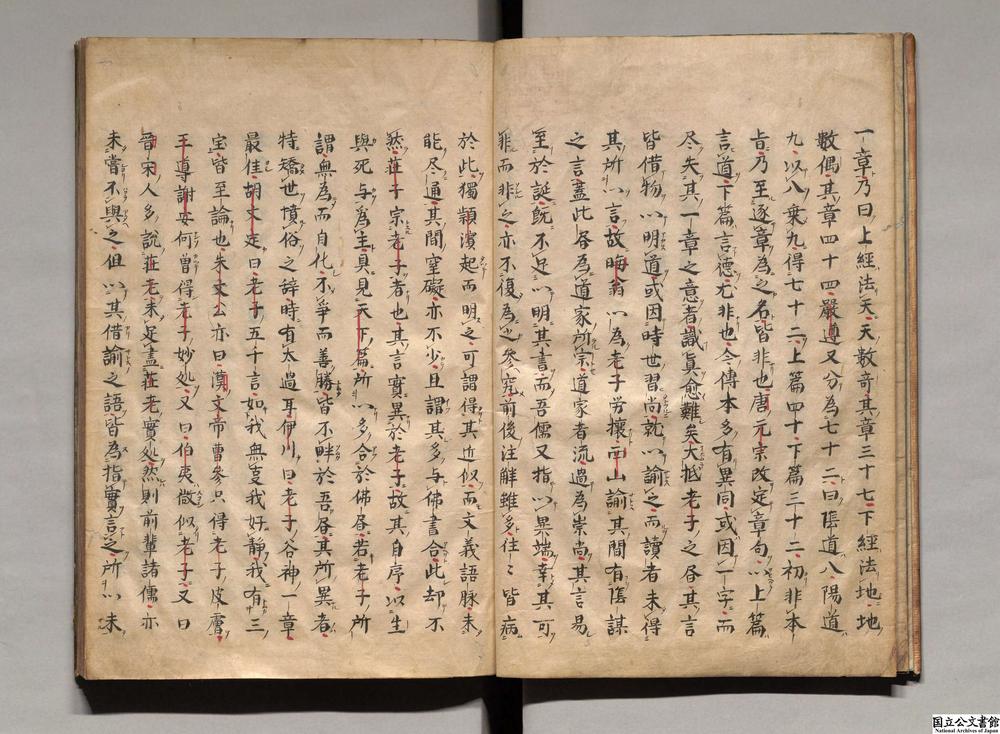 一章乃曰上經法天天数奇其章三十七下經法地地
數偶其章四十四嚴遵又分為七十二曰陰道八陽道
九以八乗九得七十二上篇四十下篇三十二初非本
旨乃至逐章為之名皆非也唐元宗改定章句以上篇
言道下篇言德尤非也今傳本多有異同或因一字而
尽失其一章之意者識真愈難矣大抵老子之書其言
皆借物以明道或因時世習尚就以諭之而讀者未得
其所以言故晦翁以為老子労攘西山諭其間有陰謀
之言蓋此書為道家所宗道家者流過為崇尚其言易
至於誕既不足以明其書而吾儒又指以異端幸其可
非而非之亦不復為之參究前後注解雖多往々皆病
於此獨頴濱起而明之可謂得其近似而文義語脉未
能尽通其間窒礙亦不少且謂其多与佛書合此却不
然莊子宗老子者也其言實異於老子故其自序以生
與死与為主具見天下篇所以多合於佛書若老子所
謂無為而自化不爭而善勝皆不畔於吾書其所異者
特矯世憤俗之辞時有太過耳伊川曰老子谷神一章
最佳胡文定曰老子五千言如我無事我好靜我有三
宝皆至論也朱文公亦曰漢文帝曹參只得老子皮膚
王導謝安何曾得老子妙処又曰伯夷微似老子又曰
晉宋人多說莊老未足盡莊老實処然則前輩諸儒亦
未嘗不與之但以其借諭之語皆為指實言之所以未
国立公文書館
National Archives of Japan